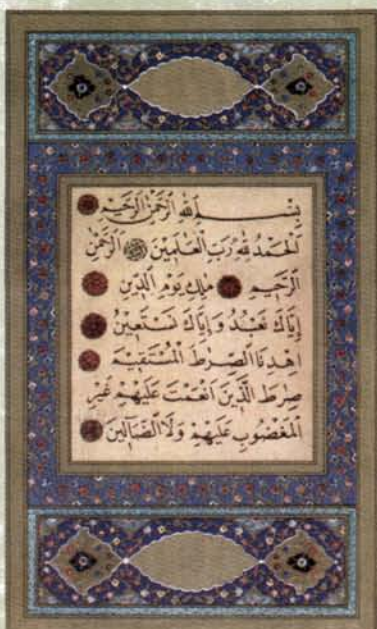 بِسْمِ اللهِ الرَّحْمٰنِ الرَّحِيْمِ
اَلْحَمْدُ لِلّٰهِ رَبِّ الْعٰلَمِيْنَ الرَّحْمٰنِ
الرَّحِيْمِ مٰلِكِ يَوْمِ الدِّيْنِ
اِيَّاكَ نَعْبُدُ وَاِيَّاكَ نَسْتَعِيْنُ
اِهْدِنَا الصِّرٰطَ الْمُسْتَقِيْمَ
صِرٰطَ الَّذِيْنَ اَنْعَمْتَ عَلَيْهِمْ غَيْرِ
الْمَغْضُوْبِ عَلَيْهِمْ وَلَا الضَّٓالِّيْنَ